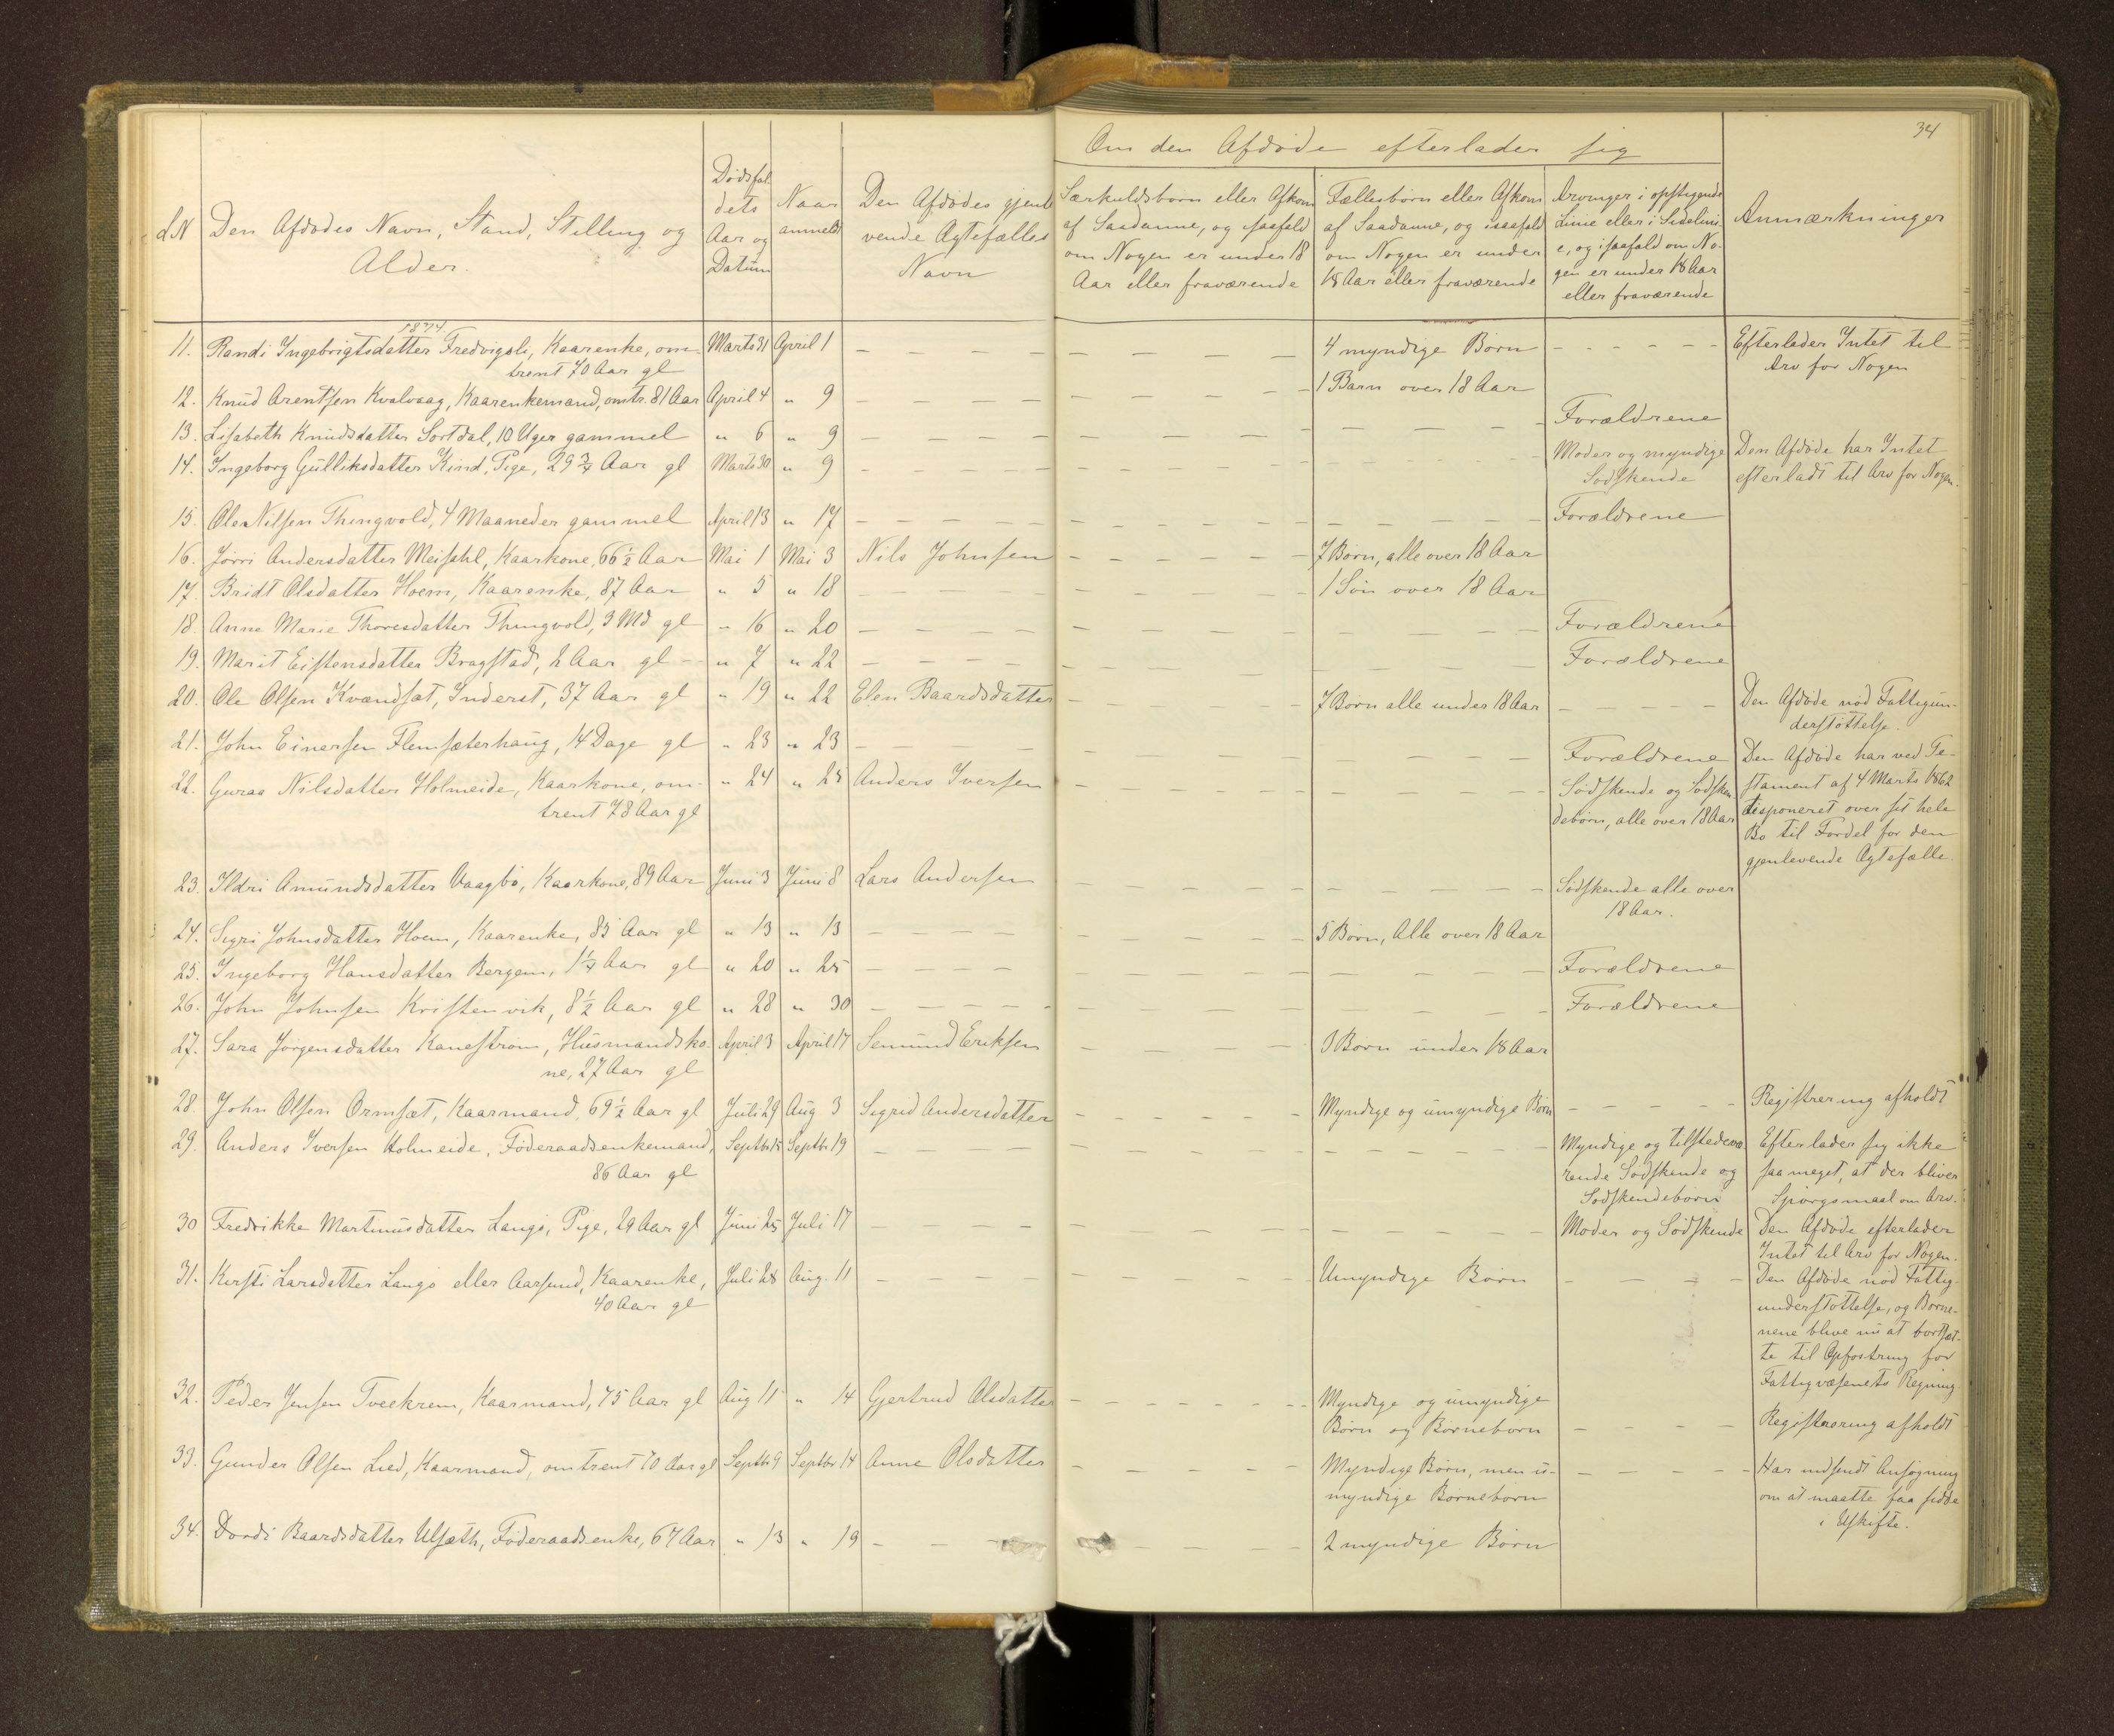 34
Om den Afdøde efterlader sig
L.N
Den Afdødes Navn, Stand, Stilling og
Alder.
Dødsfal
dets
Aar og
Datum
Naar
anmeldt
Den Afdødes gjenle
vende Ægtefælles
Navn
Særkuldsbørn eller Afkom
af Saadanne, og isaafald
om Nogen er under 18
Aar eller fraværende
Fællesbørn eller Afkom
af Saadanne, og isaafald
om Nogen er under
18 Aar eller fraværende
Arvinger i opstigende
Linie eller i Sidelini-
e, og isaafald om No-
gen er under 18 Aar
eller fraværende
Anmærkninger
1874.
11. Randi Ingebrigtsdatter Fredvigsli, Kaarenke, om- Marts 31 April 1 4 myndige Børn Efterlader Intet til
trent 70 Aar gl Arv for Nogen
12. Knud Arentsen Kvalvaag, Kaarenkemand, omtr. 81 Aar April 4 " 9 1 Barn over 18 Aar
13. Lisabeth Knudsdatter Sortdal, 10 Uger gammel " 6 " 9 Forældrene
14. Ingeborg Gulliksdatter Kind, Pige, 29 3/4 Aar gl Marts 30 " 9 Moder og myndige Den Afdøde har Intet
Sødskende efterladt til Arv for Nogen.
15. Ole Nilsen Thingvold, 4 Maaneder gammel April 13 " 17 Forældrene
16. Jørri Andersdatter Meisahl, Kaarkone, 66 1/2 Aar Mai 1 Mai 3 Nils Johnsen 7 Børn, alle over 18 Aar
17. Bridt Olsdatter Hoem, Kaarenke, 87 Aar " 5 " 18 1 Søn over 18 Aar
18. Anne Marie Thoresdatter Thingvold, 3 Md gl " 16 " 20 Forældrene
19. Marit Eistensdatter Bragstad, 2 Aar gl " 7 " 22 Forældrene
20. Ole Olsen Kvændsæt, Inderst, 37 Aar gl " 19 " 22 Elen Baardsdatter 7 Børn alle under 18 Aar Den Afdøde nød Fattigun-
derstøttelse.
21. John Einersen Flemsæterhaug, 14 Dage gl " 23 " 23 Forældrene Den Afdøde har ved Te-
22. Guraa Nilsdatter Holmeide, Kaarkone, om- " 24 " 25 Anders Iversen Sødskende og Sødsken stament af 4 Marts 1862
trent 78 Aar gl debørn, alle over 18 Aar disponeret over sit hele
Bo til Fordel for den
gjenlevende Ægtefælle.
23. Ildri Amundsdatter Vaagbø, Kaarkone, 89 Aar Juni 3 Juni 8 Lars Andersen Sødskende alle over
18 Aar.
24. Sigri Johnsdatter Hoem, Kaarenke, 85 Aar gl " 13 " 13 5 Børn, Alle over 18 Aar
25. Ingeborg Hansdatter Bergem, 1 1/4 Aar gl " 20 " 25 Forældrene
26. John Johnsen Kristenvik, 8 1/2 Aar gl " 28 " 30 Forældrene
27. Sara Jørgensdatter Kanestrøm, Husmandsko- April 3 April 17 Semund Eriksen 3 Børn under 18 Aar
ne, 27 Aar gl
28. John Olsen Ormsæt, Kaarmand, 69 1/2 Aar gl Juli 29 Aug 3 Sigrid Andersdatter Myndige og umyndige Børn Registrering afholdt
29. Anders Iversen Holmeide, Føderaadsenkemand, Septbr 15 Septbr. 19 Myndige og tilstedevæ Efterlader sig ikke
86 Aar gl rende Sødskende og saa meget, at der bliver
Sødskendebørn Spørgsmaal om Arv.
30 Fredrikke Martinusdatter Langø, Pige, 29 Aar gl Juni 25 Juli 17 Moder og Sødskende Den Afdøde efterlader
Intet til Arv for Nogen.
31. Kirsti Larsdatter Langø eller Aarsund, Kaarenke, Juli 28 Aug. 11 Umyndige Børn Den Afdøde nød Fattig-
40 Aar gl understøttelse, og Børne-
nene blive nu at bortsæt-
te til Opfostring for
Fattigvæsenets Regning
32. Peder Jensen Tveekrem, Kaarmand, 75 Aar gl Aug 11 " 14 Gjertrud Olsdatter Myndige og umyndige
Børn og Børnebørn Registrering afholdt
33. Gunder Olsen Lied, Kaarmand, omtrent 70 Aar gl Septbr 9 Septbr 14 Anne Olsdatter Myndige Børn, men u- Har indsendt Ansøgning
myndige Børnebørn om at maatte faa sidde
i Uskifte.
34. Dordi Baardsdatter Ulsæth, Føderaadsenke, 67 Aar " 13 " 19 2 myndige Børn